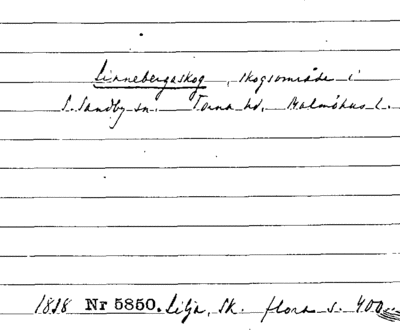 Linnebergaskog, skogsområde i
S. Sandby sn. Torna hd. Malmöhus l.
1838 Nr 5850. Lilja, Sk. flora s. 400